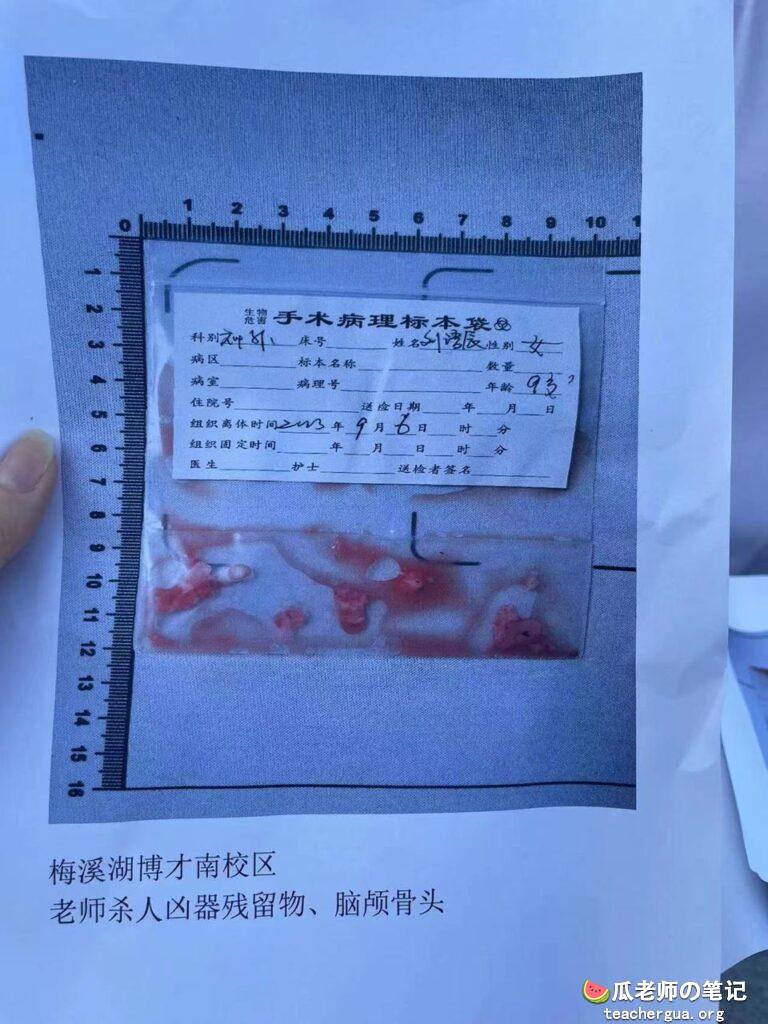 0 1 2 3 4 5 6 7 8 9 10 1
1
2
3
4
5
6
7
8
9
10
11
12
13
14
15
16
生物危害 手术病理标本袋
科别 神外 床号 姓名 刘 性别 女
病区 标本名称 数量
病室 病理号 年龄 9岁
住院号 送检日期 年 月 日
组织离体时间 2023 年 9 月 6 日 时 分
组织固定时间 年 月 日 时 分
医生 护士 送检者签名
梅溪湖博才南校区
老师杀人凶器残留物、脑颅骨头
瓜老师の笔记
teachergua.org